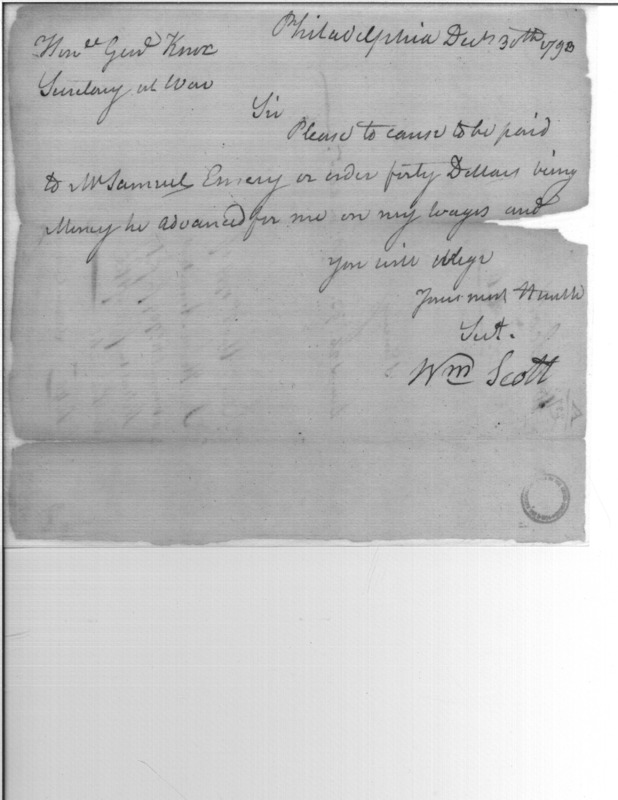 Philadelphia Decr 30th 1793
Honle Genl Knox
Secretary at War
Sir
Please to cause to be paid
to Mr Samuel Emery or order forty Dollars being
Money he advanced for me on my Wages and
you will oblige
Your most Humble
Sert.
Wm Scott